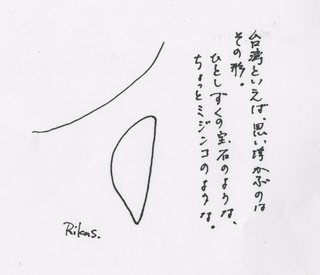 台湾といえば、思い浮かぶのは
その形。
ひとしずくの宝石のような、
ちょっとミジンコのような。
Rikas.